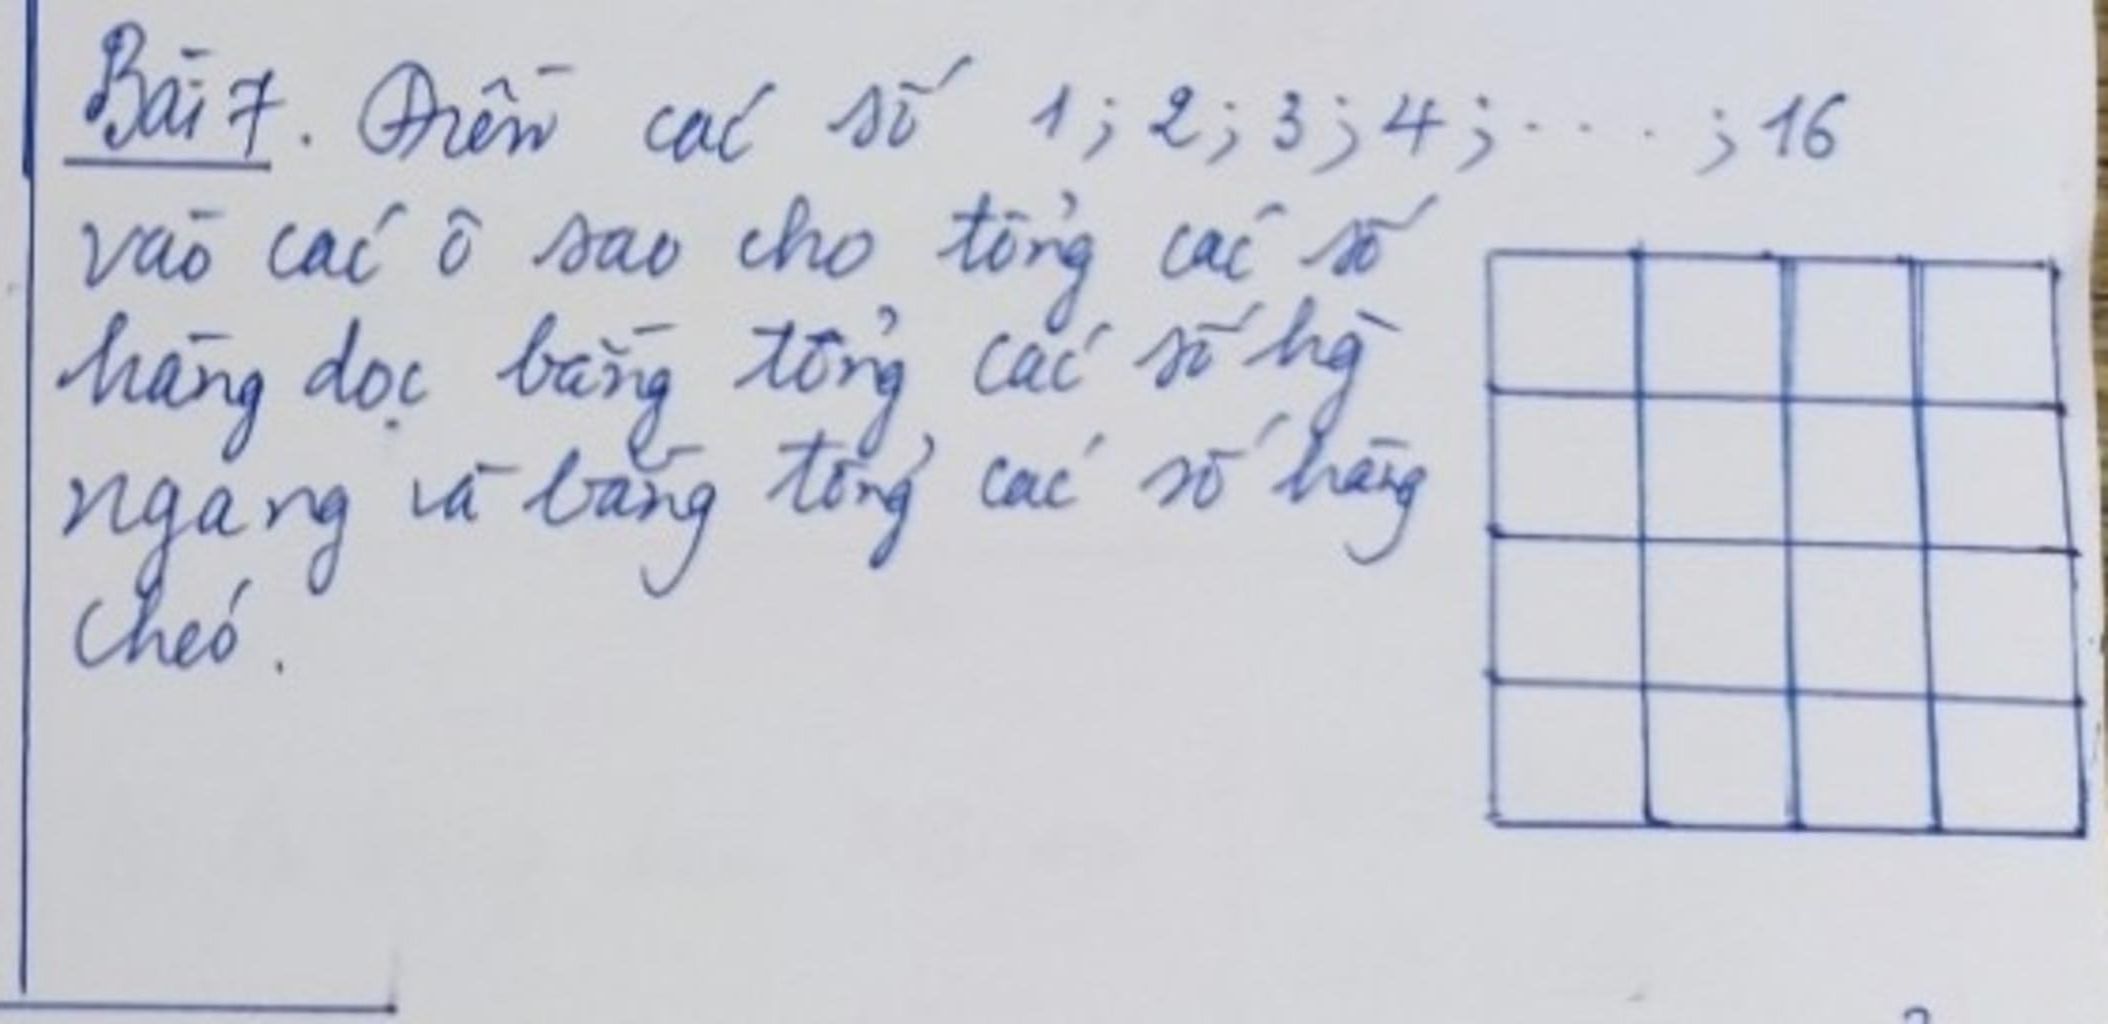 Bài 7. Điền các số 1; 2; 3; 4; .... ; 16
vào các ô sao cho tổng các số
hàng dọc bằng tổng các số hg̀
ngang và bằng tổng các số hàng
chéo.